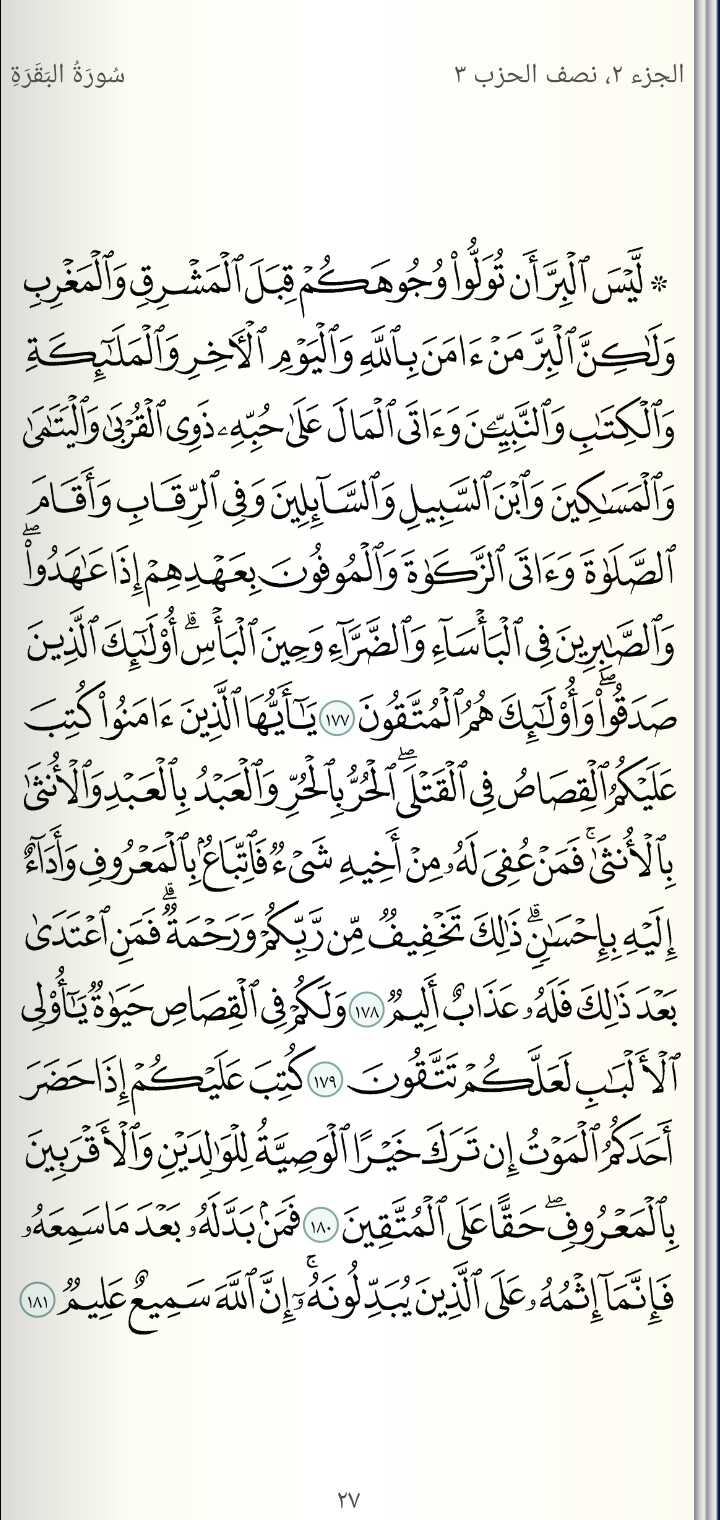 الجزء ٢، نصف الحزب ٣
سُورَةُ البَقَرَةِ
۞ لَّيْسَ ٱلْبِرَّ أَن تُوَلُّوا۟ وُجُوهَكُمْ قِبَلَ ٱلْمَشْرِقِ وَٱلْمَغْرِبِ
وَلَـٰكِنَّ ٱلْبِرَّ مَنْ ءَامَنَ بِٱللَّهِ وَٱلْيَوْمِ ٱلْـَٔاخِرِ وَٱلْمَلَـٰٓئِكَةِ
وَٱلْكِتَـٰبِ وَٱلنَّبِيِّـۧنَ وَءَاتَى ٱلْمَالَ عَلَىٰ حُبِّهِۦ ذَوِى ٱلْقُرْبَىٰ وَٱلْيَتَـٰمَىٰ
وَٱلْمَسَـٰكِينَ وَٱبْنَ ٱلسَّبِيلِ وَٱلسَّآئِلِينَ وَفِى ٱلرِّقَابِ وَأَقَامَ
ٱلصَّلَوٰةَ وَءَاتَى ٱلزَّكَوٰةَ وَٱلْمُوفُونَ بِعَهْدِهِمْ إِذَا عَـٰهَدُوا۟ ۖ
وَٱلصَّـٰبِرِينَ فِى ٱلْبَأْسَآءِ وَٱلضَّرَّآءِ وَحِينَ ٱلْبَأْسِ ۗ أُو۟لَـٰٓئِكَ ٱلَّذِينَ
صَدَقُوا۟ ۖ وَأُو۟لَـٰٓئِكَ هُمُ ٱلْمُتَّقُونَ ١٧٧ يَـٰٓأَيُّهَا ٱلَّذِينَ ءَامَنُوا۟ كُتِبَ
عَلَيْكُمُ ٱلْقِصَاصُ فِى ٱلْقَتْلَى ۖ ٱلْحُرُّ بِٱلْحُرِّ وَٱلْعَبْدُ بِٱلْعَبْدِ وَٱلْأُنثَىٰ
بِٱلْأُنثَىٰ ۚ فَمَنْ عُفِىَ لَهُۥ مِنْ أَخِيهِ شَىْءٌ فَٱتِّبَاعٌۢ بِٱلْمَعْرُوفِ وَأَدَآءٌ
إِلَيْهِ بِإِحْسَـٰنٍ ۗ ذَٰلِكَ تَخْفِيفٌ مِّن رَّبِّكُمْ وَرَحْمَةٌ ۗ فَمَنِ ٱعْتَدَىٰ
بَعْدَ ذَٰلِكَ فَلَهُۥ عَذَابٌ أَلِيمٌ ١٧٨ وَلَكُمْ فِى ٱلْقِصَاصِ حَيَوٰةٌ يَـٰٓأُو۟لِى
ٱلْأَلْبَـٰبِ لَعَلَّكُمْ تَتَّقُونَ ١٧٩ كُتِبَ عَلَيْكُمْ إِذَا حَضَرَ
أَحَدَكُمُ ٱلْمَوْتُ إِن تَرَكَ خَيْرًا ٱلْوَصِيَّةُ لِلْوَٰلِدَيْنِ وَٱلْأَقْرَبِينَ
بِٱلْمَعْرُوفِ ۖ حَقًّا عَلَى ٱلْمُتَّقِينَ ١٨٠ فَمَنۢ بَدَّلَهُۥ بَعْدَ مَا سَمِعَهُۥ
فَإِنَّمَآ إِثْمُهُۥ عَلَى ٱلَّذِينَ يُبَدِّلُونَهُۥٓ ۚ إِنَّ ٱللَّهَ سَمِيعٌ عَلِيمٌ ١٨١
٢٧